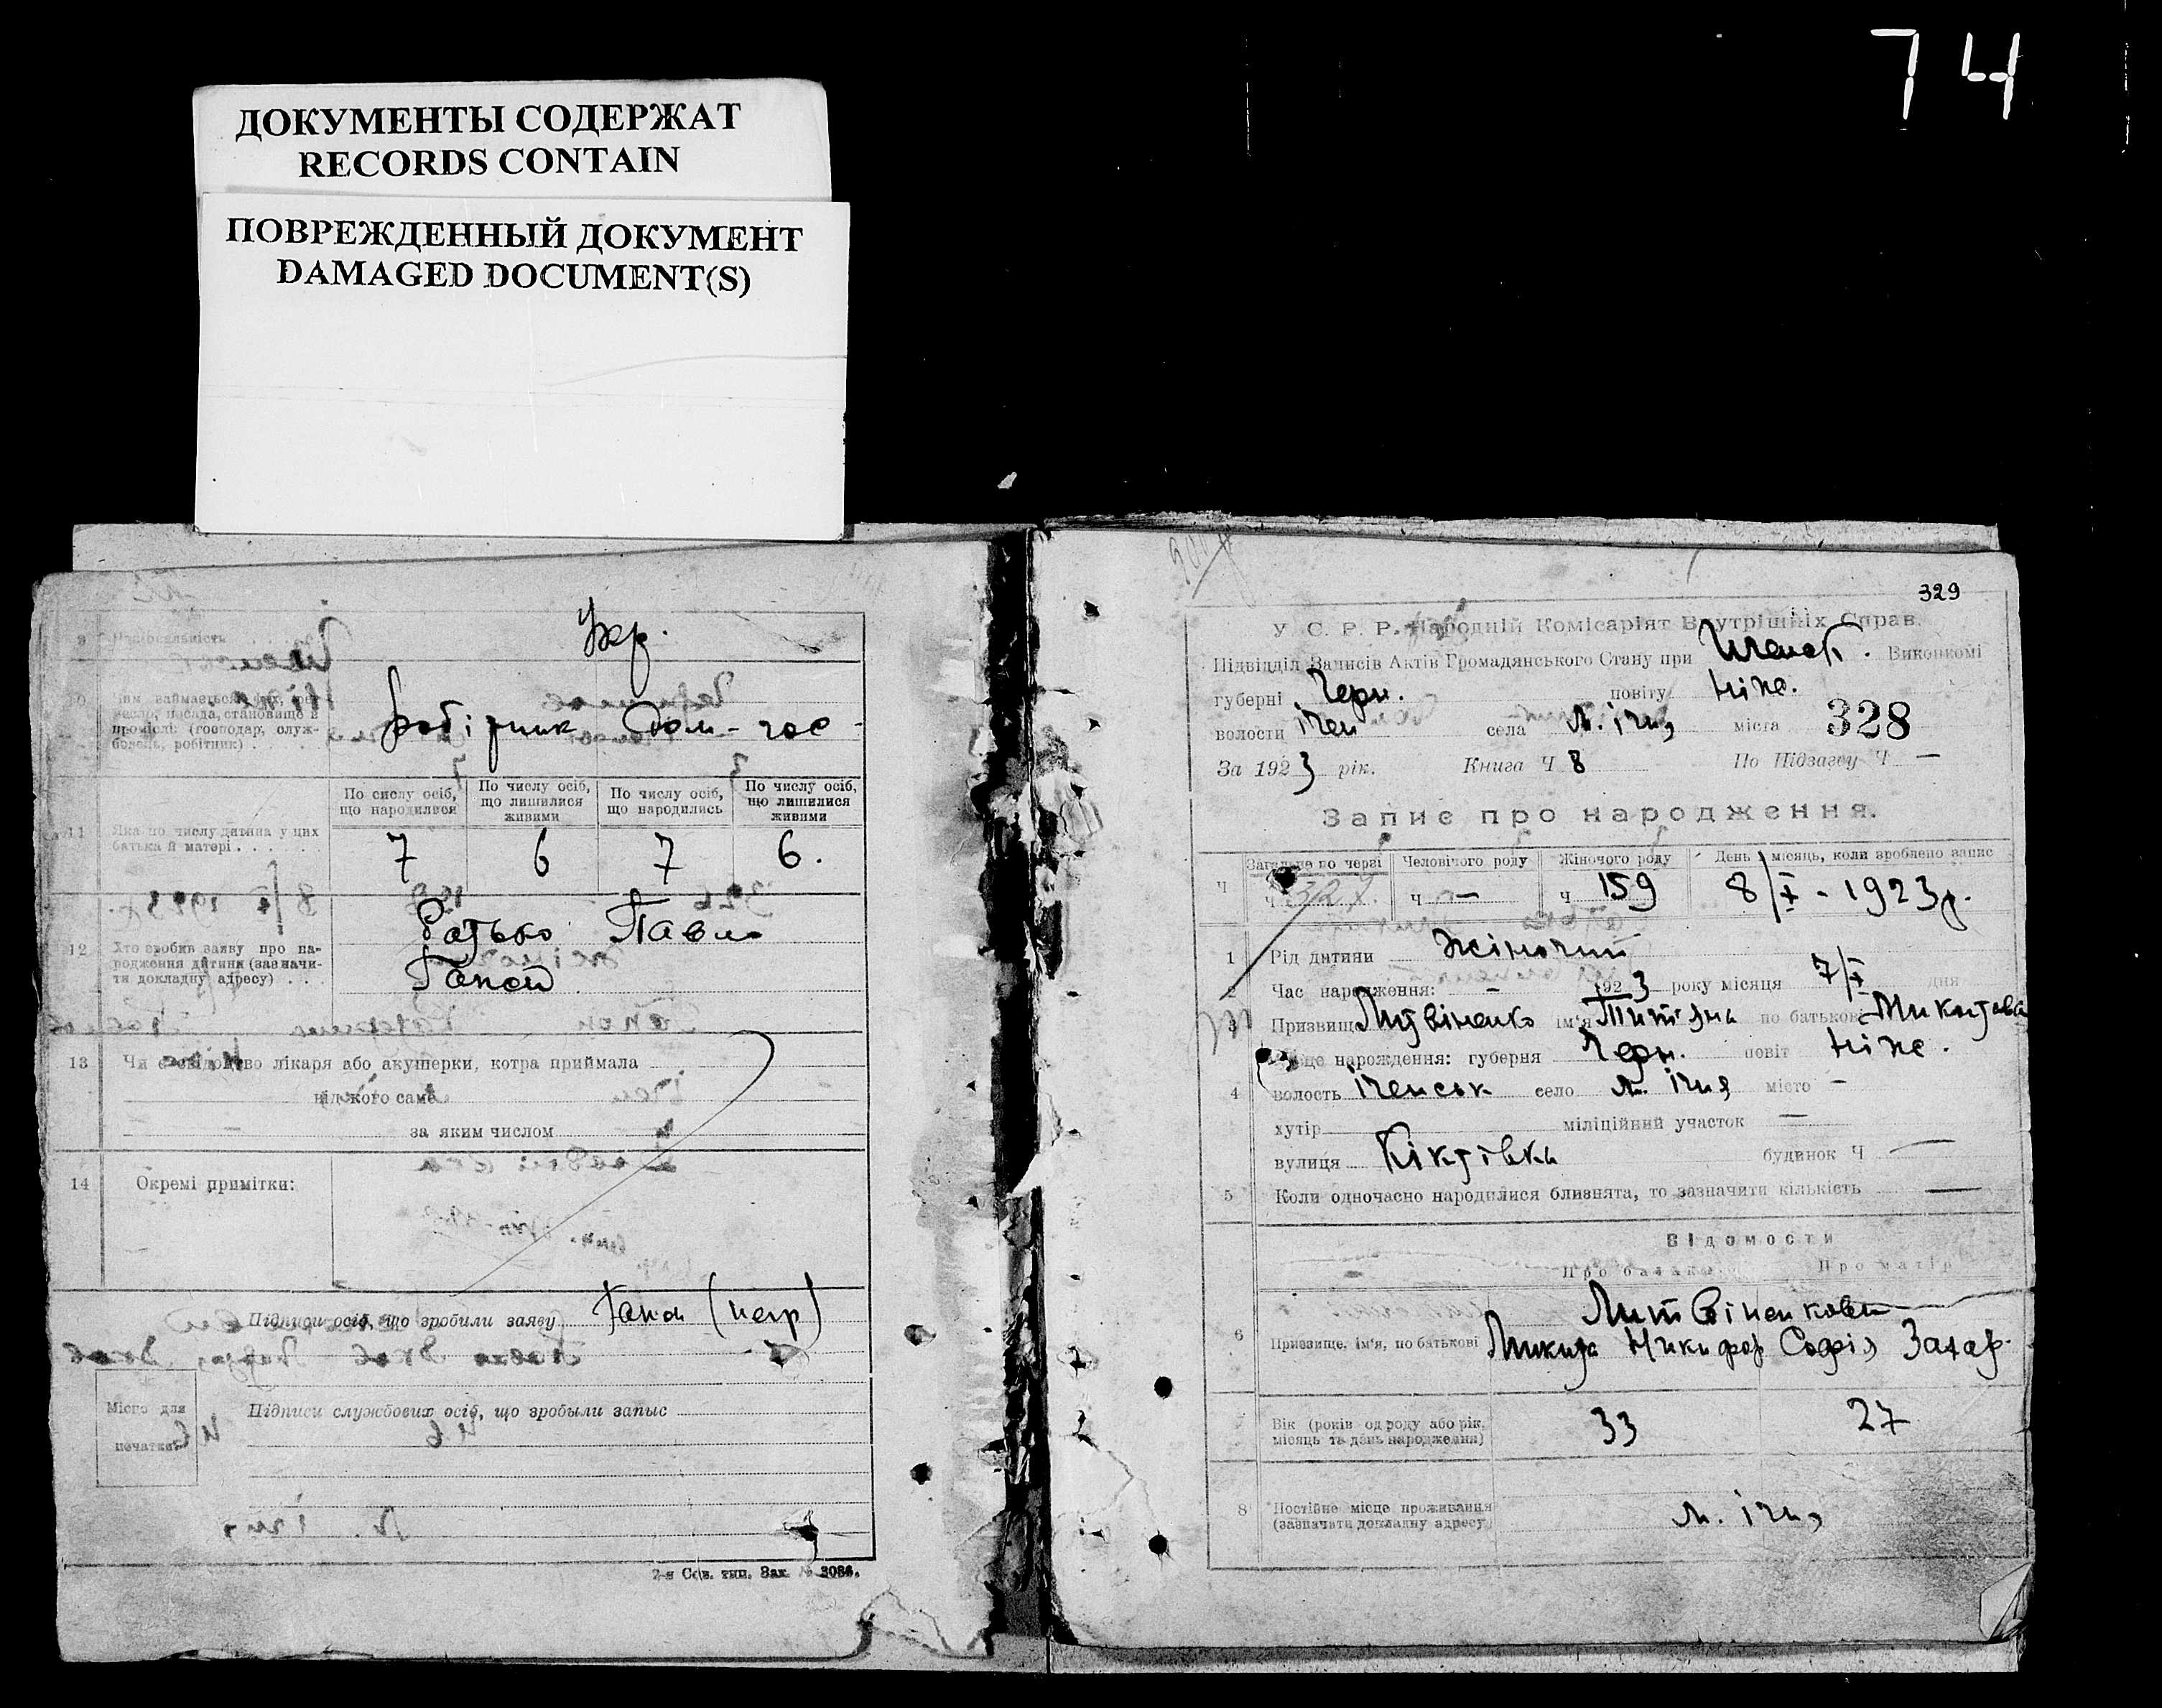 74
ДОКУМЕНТЫ СОДЕРЖАТ
RECORDS CONTAIN
ПОВРЕЖДЕННЫЙ ДОКУМЕНТ
DAMAGED DOCUMENT(S)
9 Національність Укр.
10 Чим займається: фах, ре-
месло, посада, становище в
промислі: (господар, служ-
бовець, робітник) робітник дом-гос-
По числу осіб, що народилися
По числу осіб, що лишилися живими
По числу осіб, що народились
По числу осіб, що лишилися живими
11 Яка по числу дитина у цих
батька й матері 7 6 7 6.
12 Хто зробив заяву про на-
родження дитини (зазначи-
ти докладну адресу)
Батько Павло
13 Чи є свідоцтво лікаря або акушерки, котра приймала
від кого саме
за яким числом
14 Окремі примітки:
Підписи осіб, що зробили заяву
Місце для
печатки
Підписи службових осіб, що зробыли запыс
2-я Сов. тип. Зак. № 3086.
329
У. С. Р. Р. Народній Комісаріят Внутрішніх Справ.
Підвідділ Записів Актів Громадянського Стану при Виконкомі
губерні Черн. повіту Ніже.
волости Ічен села м. Ічня міста 328
За 1923 рік. Книга Ч 8 По Підзагсу Ч —
Запис про народження.
Загальне по черзі
Человічого роду
Жіночого роду
День і місяць, коли зроблено запис
Ч ч 327. ч — ч 159 8/X - 1923 р.
1 Рід дитини жіночий
2 Час народження: - 1923 року місяця 7/X дня
3 Призвище Литвіненко ім'я Титяна по батькові Микитова
Місце народження: губерня Черн. повіт Ніже.
4 волость Іченськ село м. Ічня місто -
хутір міліційний участок —
вулиця будинок Ч —
5 Коли одночасно народилися близнята, то зазначити кількість —
Відомости
Про батька Про матір
Литвіненкови
6 Призвище, ім'я, по батькові Микита Никифор Софія Захар.
Вік (років од роду або рік,
місяць та день народження) 33 27
8 Постійне місце проживання
(зазначити докладну адресу) м. Ічня